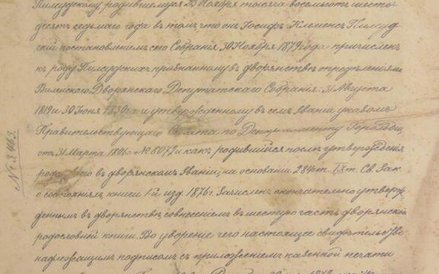 Пилсудскому, родившемуся 23 Ноября тысяча восемьсотъ шесть
десятъ седьмаго года въ томъ, что онъ Іосифъ Клеменсъ Пилсуд
скій постановленіемъ сего Собранія, 30 Ноября 1879 года причисленъ
къ роду Пилсудскихъ признанному въ дворянствѣ опредѣленіями
Виленскаго Дворянскаго Депутатскаго Собранія: 31 Августа
1819 и 30 Іюня 18 г. и утвержденному въ семъ званіи указомъ
Правительствующаго Сената по Департаменту Герольдіи
отъ 31 Марта №8072 и какъ родившійся послѣ утвержденія
рода его въ дворянскомъ званіи, на основаніи 284 ст. IX т. Св. Зак.
о состояніяхъ книги 1й изд. 1876 г. зачисленъ окончательно утверж
деннымъ въ дворянствѣ, со внесеніемъ въ шестую часть дворянской
родословной книги. Во увѣреніе чего настоящее свидѣтельство
надлежащимъ подписомъ съ приложеніемъ казенной печати